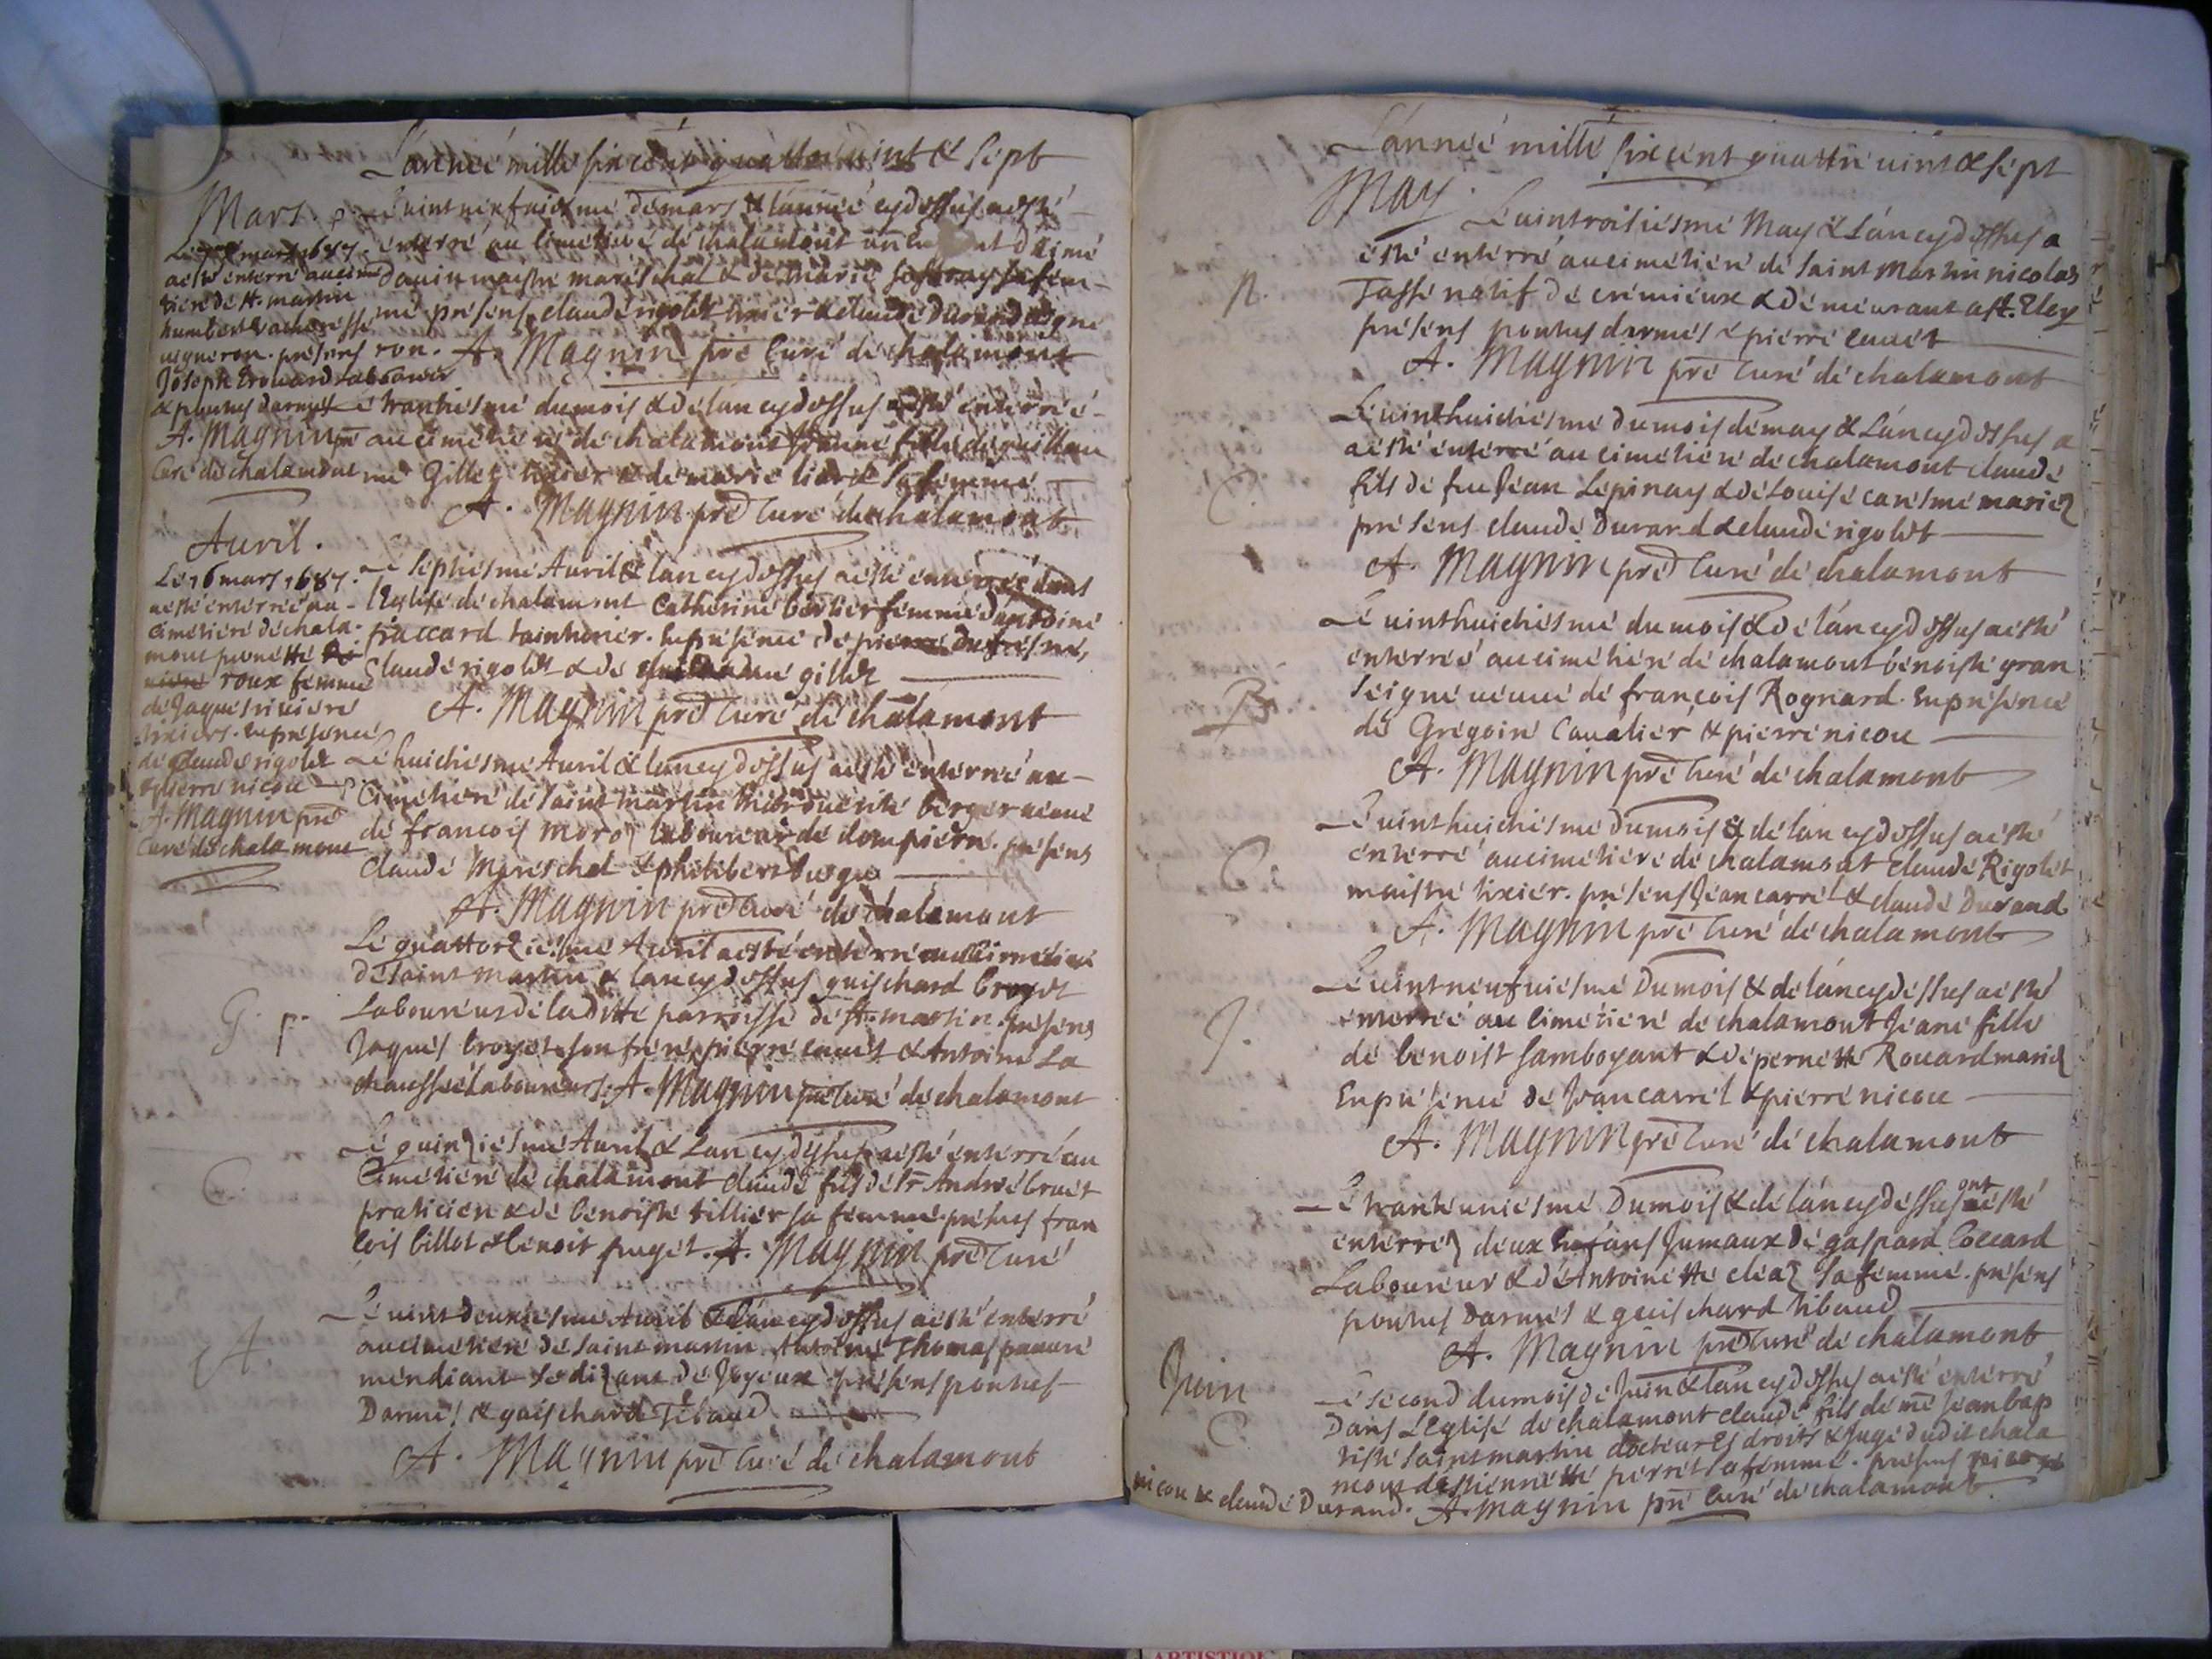 L'année mille six cent quattre uint & sept
Mars.
Le uint neufuiesme de mars & l'année cydessus a esté
enterré au cimetiere de chalamont un enfant d'aimé
Dauin maistre mareschal & de marie sa fem-
me présens claude rigolet tixier & claude Durand uigne
ron. A. Magnin prē Curé de chalamont
Le mars 1687.
a esté enterré au cime
tiere de st. martin
humbert uacheresse
uigneron. présens
Joseph Erouard laboureur
& pontus darmes
A. Magnin prē
Curé de chalamont
Le trantiesme du mois & de l'an cydessus a esté enterrée
au cimetiere de chalamont Jeanne fille de guillau
me Gillet tixier & de marie liard sa femme
A. Magnin prē Curé de chalamont
Auril.
Le 16 mars 1687.
a esté enterrée au
cimetiere de chala-
mont pernette
roux femme
de Jaques riuiere
tixiers. En présence
de claude rigolet
& pierre nicou
A. Magnin prē
Curé de chalamont
Le septiesme Auril & l'an cydessus a esté enterrée dans
l'Eglise de chalamont Catherine berlier femme d'antoine
fraccard tainturier. En présence de pierre dufresne,
Claude rigolet & de guillaume gillet
A. Magnin prē Curé de chalamont
Le huictiesme Auril & l'an cydessus a esté enterré au
Cimetiere de saint martin marguerite berger ueuue
de francois moroz laboureur de dompierre. présens
Claude Mareschal & philibert
A. Magnin prē Curé de chalamont
Le quattorziesme Auril a esté enterré au Cimetiere
de saint martin & l'an cydessus guischard broyet
Laboureur de laditte parroisse de st. martin. présens
G. p.
Jaques broyet son frere pierre cauet & Antoine La
chaussée Laboureurs. A. Magnin prē Curé de chalamont
Le quinziesme Auril & L'an cydessus a esté enterré au
C.
Cimetiere de chalamont claude fils de sr André bruet
praticien & de benoiste tillier sa femme. présens fran
cois billot & benoit puget. A. Magnin prē Curé
Le uint deuxiesme Auril & l'an cydessus a esté enterré
A.
au cimetiere de saint martin Antoine Thomas pauure
mendiant se dizant de Joyeux présens pontus
Darmes & guischard Tibaud
A. Magnin prē Curé de chalamont
L'année mille six cent quattre uint & sept
May
Le uintroisiesme May & L'an cydessus a
esté enterré au cimetiere de saint Martin nicolas
N.
Tassé natif de crémieux & demeurant a st. Eloy
présens pontus darmes & pierre cauet
A. Magnin prē Curé de chalamont
Le uinthuictiesme du mois de may & L'an cydessus a
a esté enterré au cimetiere de chalamont claude
C.
fils de feu Jean Lépinay & de Louise caresme mariez
présens claude Durand & claude rigolet
A. Magnin prē Curé de chalamont
Le uinthuictiesme du mois & de l'an cydessus a esté
enterrée au cimetiere de chalamont benoiste gran
B.
seigne ueuue de françois Rognard. En présence
de Grégoire Caualier & pierre nicou
A. Magnin prē Curé de chalamont
Le uinthuictiesme du mois & de l'an cydessus a esté
C.
enterré au cimetiere de chalamont Claude Rigolet
maistre tixier. présens Jean carrel & claude Durand.
A. Magnin prē Curé de chalamont
Le uint neufuiesme Du mois & de l'an cydessus a esté
J.
enterrée au cimetiere de chalamont Jeane fille
de benoist Jamboyant & de pernette Rouard mariez
En présence de Jean carrel & pierre nicou
A. Magnin prē Curé de chalamont
Le trante uniesme Du mois & de l'an cydessus ont esté
enterrez deux Enfans Jumaux de gaspard Coccard
Laboureur & d'Antoinette cléaz sa femme. présens
pontus Darmes & guischard tibaud
A. Magnin prē Curé de chalamont
Juin
Le second du mois de Juin & l'an cydessus a esté enterré
C.
Dans L'Eglise de chalamont claude fils de mē Jean bap
tiste saint martin docteur es droits & Juge dudit chala
mont & d'estiennette perret sa femme. présens
nicou & claude Durand. A. Magnin prē Curé de chalamont.